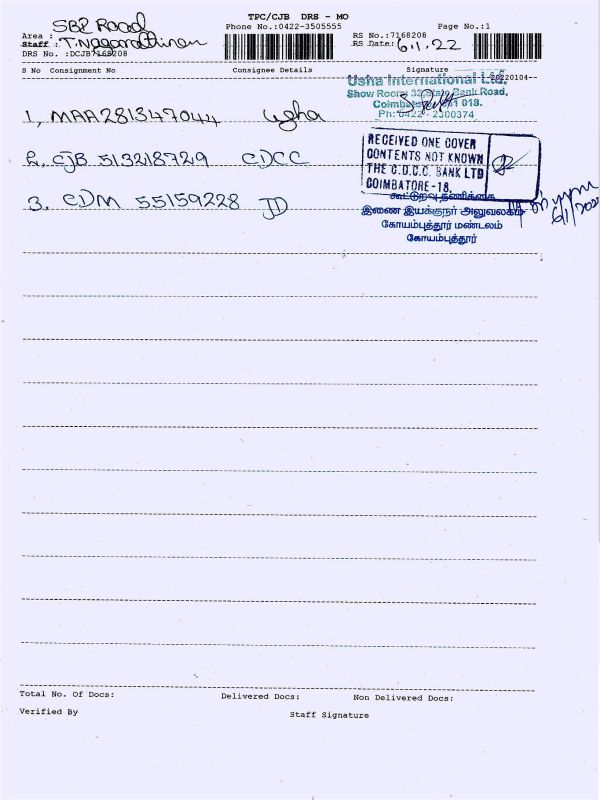 TPC/CJB DRS - MO
Phone No.:0422-3505555
Page No.:1
Area : SBI Road
Staff : T. Nagarathinam
DRS No. :DCJB7168208
RS No.:7168208
RS Date: 6.1.22
S No Consignment No Consignee Details Signature
20220104--
Usha International Ltd.
Show Room: 33, State Bank Road,
Coimbatore - 641 018.
Ph: 0422 - 2300374
1, MAA281347044 Usha
RECEIVED ONE COVER
CONTENTS NOT KNOWN
THE C.D.C.C. BANK LTD
COIMBATORE-18.
2. CJB 513218729 CDCC
3. CDM 55159228 JD
கூட்டுறவு தணிக்கை
இணை இயக்குநர் அலுவலகம்
கோயம்புத்தூர் மண்டலம்
கோயம்புத்தூர்
6/1/2022
Total No. Of Docs: Delivered Docs: Non Delivered Docs:
Verified By Staff Signature